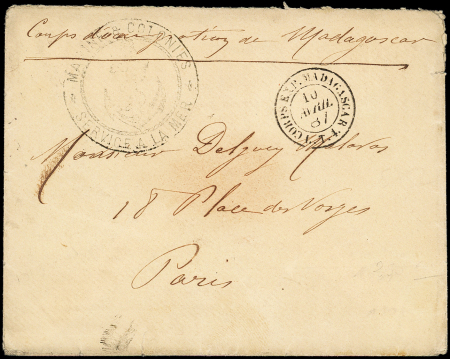 Corps d'occupation de Madagascar
MARINE & COLONIES
SERVICE À LA MER
CORPS EXP. MADAGASCAR
10
AVRIL
87
Monsieur Delpuey Malavas
18 Place des Vosges
Paris